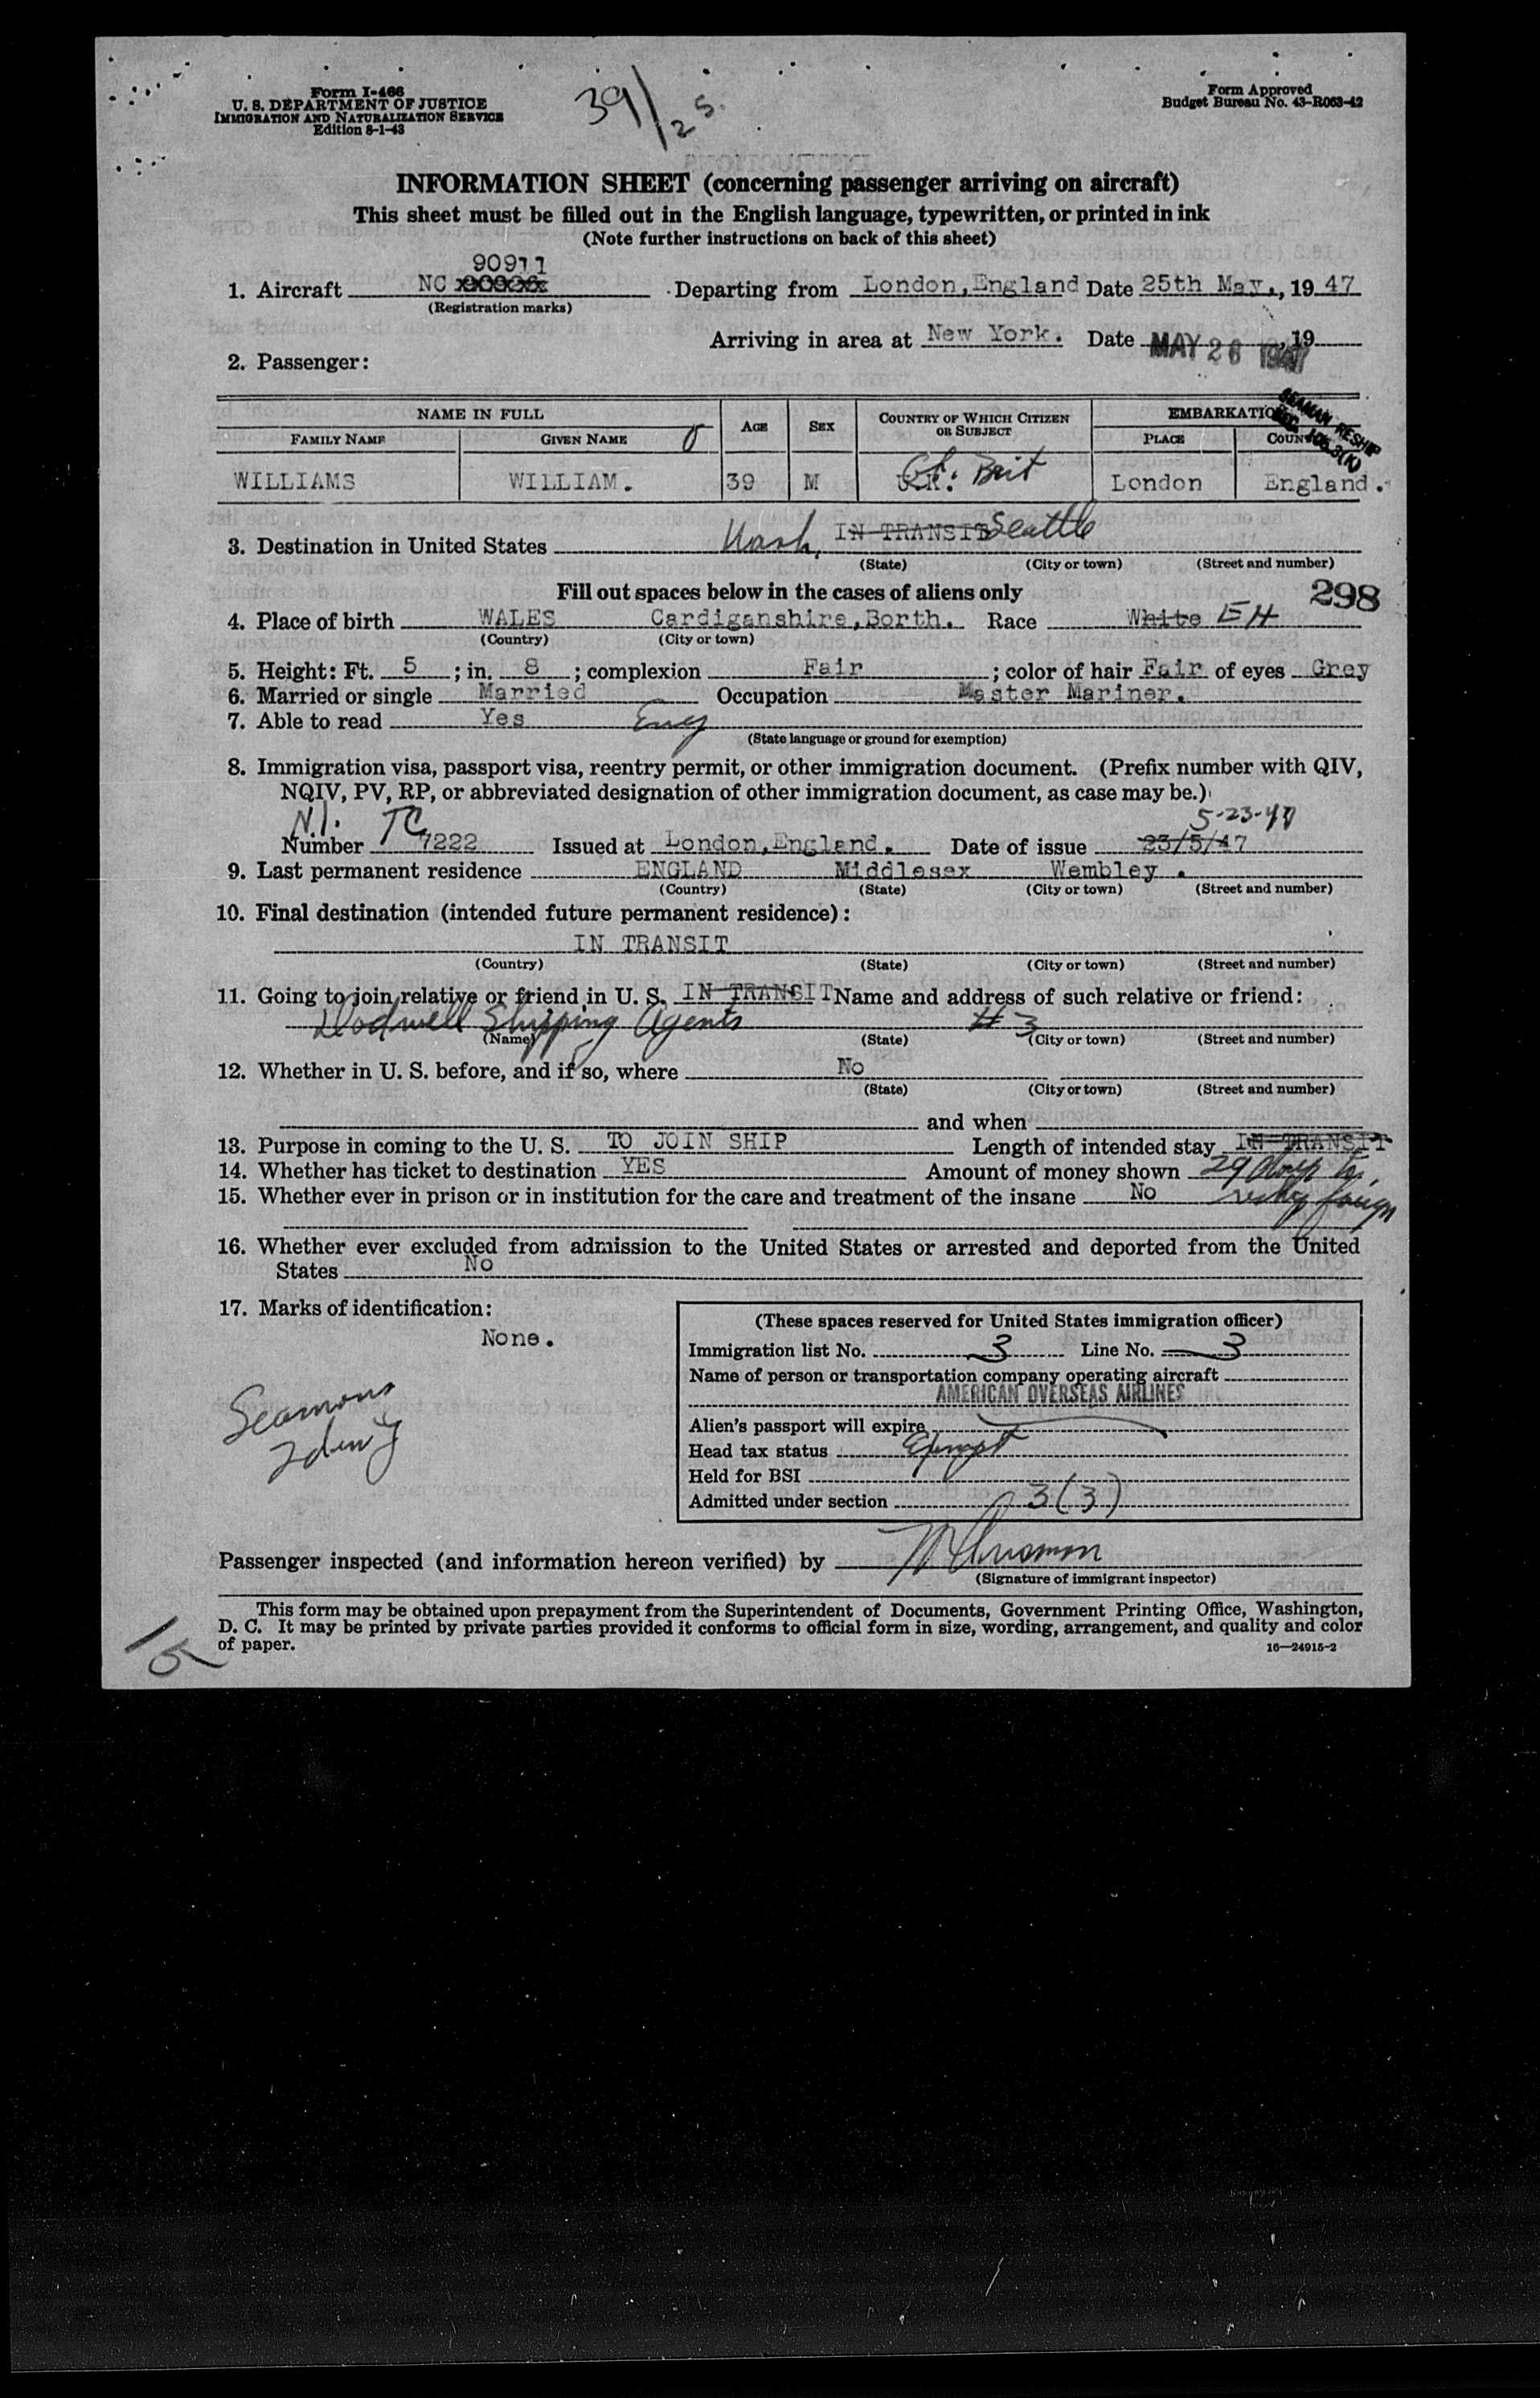 Form I-466
U. S. DEPARTMENT OF JUSTICE
IMMIGRATION AND NATURALIZATION SERVICE
Edition 8-1-43
39/25.
Form Approved
Budget Bureau No. 43-R063-42
INFORMATION SHEET (concerning passenger arriving on aircraft)
This sheet must be filled out in the English language, typewritten, or printed in ink
(Note further instructions on back of this sheet)
90911
1. Aircraft NC Departing from London, England Date 25th May., 19 47
(Registration marks)
Arriving in area at New York. Date MAY 26 1947, 19
2. Passenger:
NAME IN FULL AGE SEX COUNTRY OF WHICH CITIZEN OR SUBJECT EMBARKATION
FAMILY NAME GIVEN NAME PLACE COUN
SEAMAN RESHIP
SEC. 105.3(K)
WILLIAMS WILLIAM. 39 M U.K. Gt. Brit London England.
3. Destination in United States Wash. IN TRANSIT Seattle
(State) (City or town) (Street and number)
Fill out spaces below in the cases of aliens only 298
4. Place of birth WALES Cardiganshire, Borth. Race White EH
(Country) (City or town)
5. Height: Ft. 5 ; in. 8 ; complexion Fair ; color of hair Fair of eyes Grey
6. Married or single Married Occupation Master Mariner.
7. Able to read Yes Eng
(State language or ground for exemption)
8. Immigration visa, passport visa, reentry permit, or other immigration document. (Prefix number with QIV,
NQIV, PV, RP, or abbreviated designation of other immigration document, as case may be.)
N.I. TC 5-23-47
Number 7222 Issued at London, England. Date of issue 23/5/47
9. Last permanent residence ENGLAND Middlesex Wembley .
(Country) (State) (City or town) (Street and number)
10. Final destination (intended future permanent residence):
IN TRANSIT
(Country) (State) (City or town) (Street and number)
11. Going to join relative or friend in U. S. IN TRANSIT Name and address of such relative or friend:
Dodwell Shipping Agents # 3
(Name) (State) (City or town) (Street and number)
12. Whether in U. S. before, and if so, where No
(State) (City or town) (Street and number)
and when
13. Purpose in coming to the U. S. TO JOIN SHIP Length of intended stay IN TRANSIT
14. Whether has ticket to destination YES Amount of money shown 29 days to
15. Whether ever in prison or in institution for the care and treatment of the insane No reship foreign
16. Whether ever excluded from admission to the United States or arrested and deported from the United
States No
17. Marks of identification:
None.
Seamans
Identy
(These spaces reserved for United States immigration officer)
Immigration list No. 3 Line No. 3
Name of person or transportation company operating aircraft
AMERICAN OVERSEAS AIRLINES INC
Alien's passport will expire
Head tax status Exempt
Held for BSI
Admitted under section 3(3)
Passenger inspected (and information hereon verified) by
(Signature of immigrant inspector)
This form may be obtained upon prepayment from the Superintendent of Documents, Government Printing Office, Washington,
D. C. It may be printed by private parties provided it conforms to official form in size, wording, arrangement, and quality and color
of paper.
16—24915-2
15